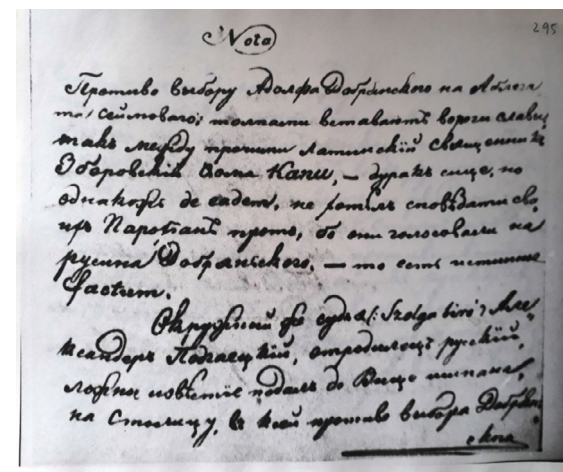 295
Nota
Противо выбору Адольфа Добрянского на Аблега
та, сеймоваго; толпасти вставаютъ вороги славы
такъ между прочими латинскій священникъ
Зборовскій Ѳома Капи, — дуракъ сице, но
однакожъ de eadem, не хотѣлъ сповѣдати сво
ихъ Паротянъ прото, бо они голосовали на
русина Добраньского. — то есть истинное
factum.
Окружный же судья (: Szolga biró :) Але
ксандеръ отродилецъ русскій,
ложны извѣстіе подалъ до Вице ишпана,
на Столицу, въ коей противо выбора Добрян
ского